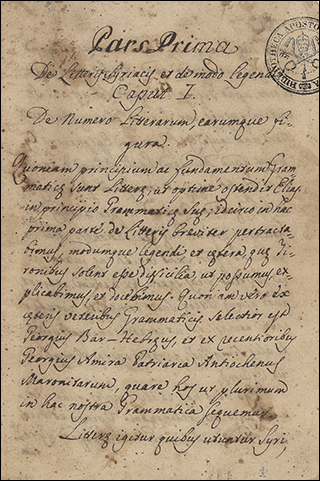 Pars Prima
De Litteris Syriacis et de modo legendi
Caput I.
De Numero Litterarum, earumque fi-
gura.
Quoniam principium ac fundamentum Gram-
maticę sunt Litterę, ut optime ostendit Elias
in principio Grammaticę suę, idcirco in hac
prima parte de Litteris breviter pertracta-
bimus, modumque legendi et cętera quę Ti-
ronibus solent esse dificilia ut possumus ex-
plicabimus, et docebimus. Quoniam vero ex
cęteris veteribus Grammaticis selectior est
Georgius Bar-Hebręus, et ex recentioribus
Georgius Amira Patriarca Antiochenus
Maronitarum, quare hos ut plurimum
in hac nostra Grammatica sequemur.
Litterę igitur quibus utuntur Syri,